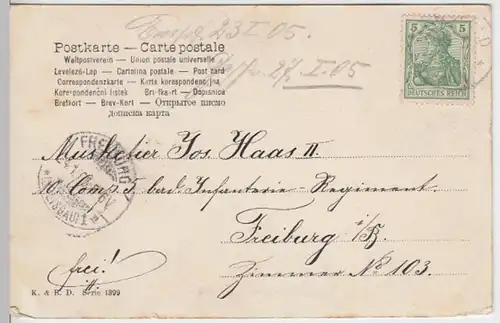 Empf. 23 I 05.
27. I. 05
Postkarte – Carte postale
Weltpostverein – Union postale universelle
Levelező-Lap – Cartolina postale – Post card
Correspondenzkarte – Karta korespondencyjna
Korespondenční lístek – Dopisnica
Brefkort – Brev-Kort – Открытое письмо
дописна карта
5 5
DEUTSCHES REICH
FREIBURG
(BREISGAU) 1
Musketier Jos. Haas II.
10. Comp. 5. bad. Infanterie-Regiment
Freiburg i/B.
Zimmer No 103.
frei!
K. & B. D. Serie 1899